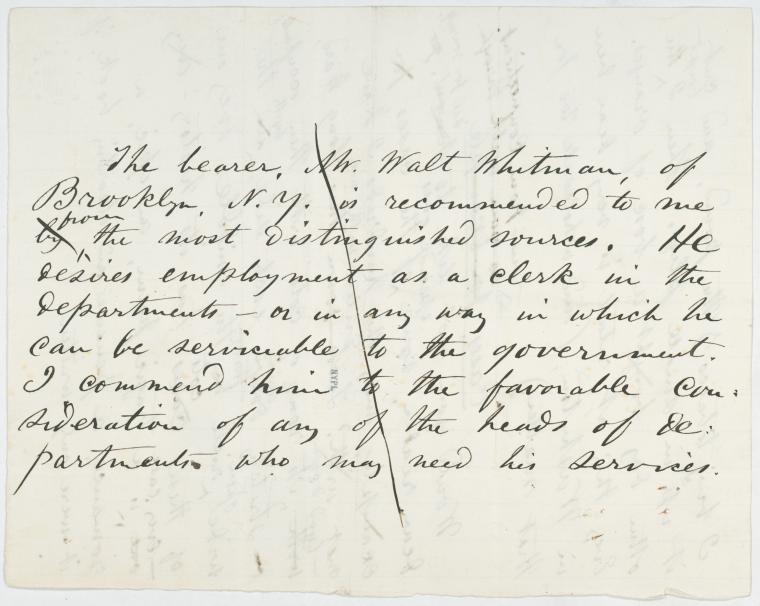 The bearer, Mr. Walt Whitman, of
Brooklyn, N.Y. is recommended to me
by from the most distinguished sources. He
desires employment as a clerk in the
departments – or in any way in which he
can be serviciable to the government.
I commend him to the favorable con-
sideration of any of the heads of de-
partments who may need his services.
NYPL